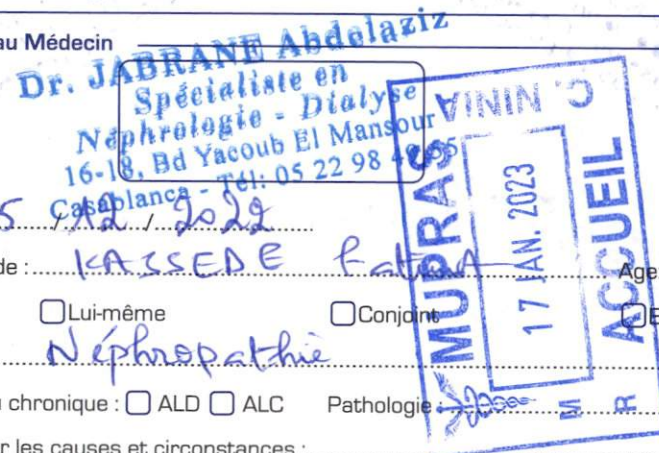 au Médecin
Dr. JABRANE Abdelaziz
Spécialiste en
Néphrologie - Dialyse
16-18, Bd Yacoub El Mansour
Casablanca - Tél: 05 22 98
5 / 12 / 2022
de : KASSEDE Fatima Age
Lui-même Conjoint E
Néphropathie
chronique : ALD ALC Pathologie :
r les causes et circonstances :
MUPRAS
17 JAN. 2023
ACCUEIL